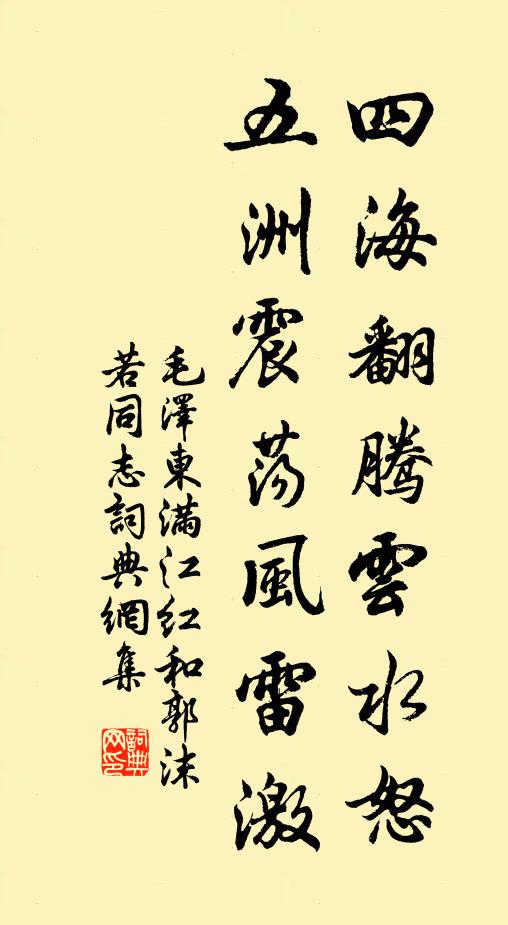 四海翻騰雲水怒
五洲震荡風雷激
毛澤東满江红和郭沫
若同志詞典網集
詞典
网印